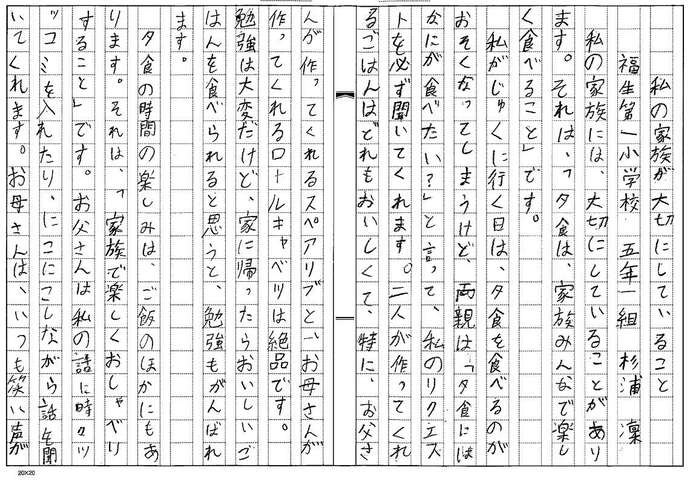 私の家族が大切にしていること
福生第一小学校 五年一組 杉浦 凜
私の家族には、大切にしていることがあり
ます。それは、「夕食は、家族みんなで楽し
く食べること」です。
私がじゅくに行く日は、夕食を食べるのが
おそくなってしまうけど、両親は「夕食には
なにが食べたい?」と言って、私のリクエス
トを必ず聞いてくれます。二人が作ってくれ
るごはんはどれもおいしくて、特に、お父さ
んが作ってくれるスペアリブと、お母さんが
作ってくれるロールキャベツは絶品です。
勉強は大変だけど、家に帰ったらおいしいご
はんを食べられると思うと、勉強もがんばれ
ます。
夕食の時間の楽しみは、ご飯のほかにもあ
ります。それは、「家族で楽しくおしゃべり
すること」です。お父さんは私の話に時々ツ
ッコミを入れたり、にこにこしながら話を聞
いてくれます。お母さんは、いつも笑い声が
20×20